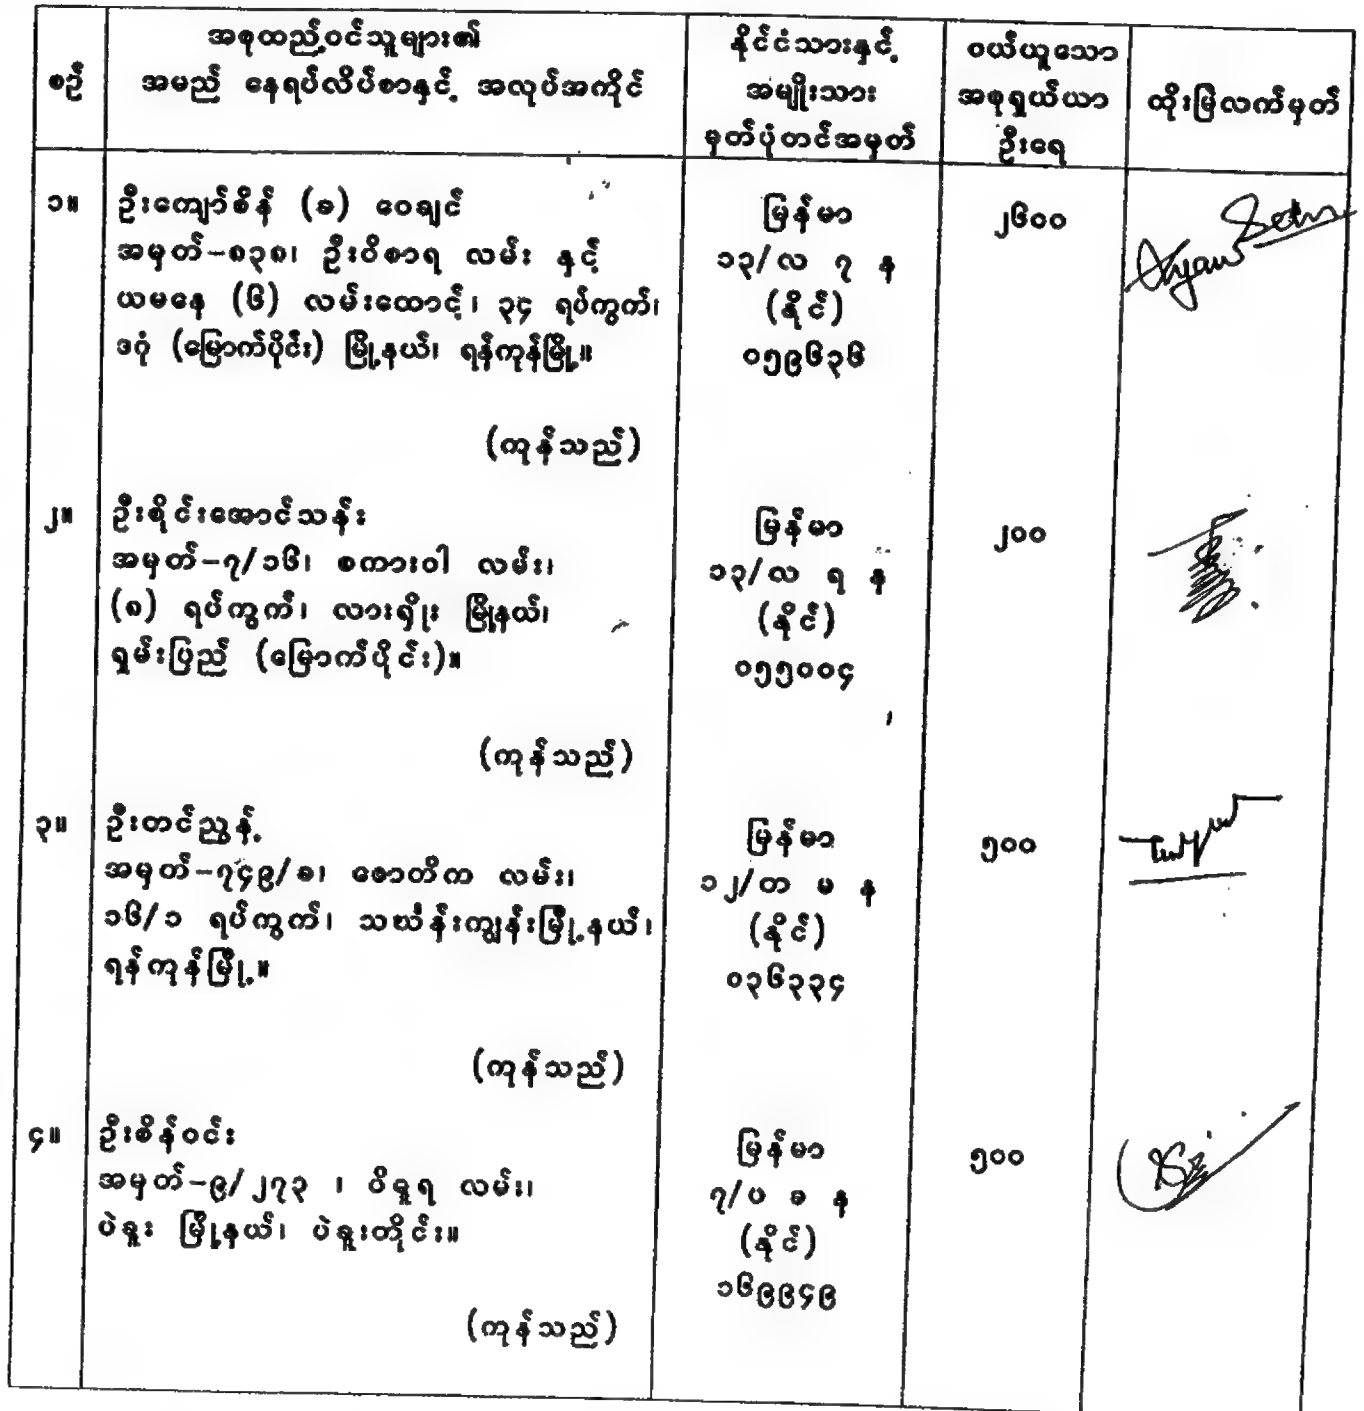 စဉ်
အစုထည့်ဝင်သူများ၏
အမည် နေရပ်လိပ်စာနှင့် အလုပ်အကိုင်
နိုင်ငံသားနှင့်
အမျိုးသား
မှတ်ပုံတင်အမှတ်
ဝယ်ယူသော
အစုရှယ်ယာ
ဦးရေ
ထိုးမြဲလက်မှတ်
၁။
ဦးကျော်စိန် (ခ) ဝေချင်
အမှတ်-၈၃၈၊ ဦးဝိစာရ လမ်း နှင့်
ယမနေ (၆) လမ်းထောင့်၊ ၃၄ ရပ်ကွက်၊
ဒဂုံ (မြောက်ပိုင်း) မြို့နယ်၊ ရန်ကုန်မြို့။
(ကုန်သည်)
မြန်မာ
၁၃/လ ၇ န
(နိုင်)
၀၅၉၆၃၆
၂၆၀၀
Kyaw Sein
၂။
ဦးစိုင်းအောင်သန်း
အမှတ်-၇/၁၆၊ စကားဝါ လမ်း၊
(၈) ရပ်ကွက်၊ လားရှိုး မြို့နယ်၊
ရှမ်းပြည် (မြောက်ပိုင်း)။
(ကုန်သည်)
မြန်မာ
၁၃/လ ရ န
(နိုင်)
၀၅၅၀၀၄
၂၀၀
၃။
ဦးတင်ညွန့်
အမှတ်-၇၄၉/ခ၊ ဇောတိက လမ်း၊
၁၆/၁ ရပ်ကွက်၊ သင်္ဃန်းကျွန်းမြို့နယ်၊
ရန်ကုန်မြို့။
(ကုန်သည်)
မြန်မာ
၁၂/တ မ န
(နိုင်)
၀၃၆၃၃၄
၅၀၀
၄။
ဦးစိန်ဝင်း
အမှတ်-၉/၂၇၃ ၊ ဝိဓူရ လမ်း၊
ပဲခူး မြို့နယ်၊ ပဲခူးတိုင်း။
(ကုန်သည်)
မြန်မာ
၇/ပ ခ န
(နိုင်)
၁၆၉၉၄၉
၅၀၀